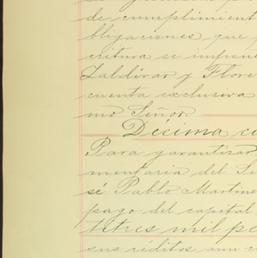 de cumplimient
bligaciones, que
critura se impone
Zaldivar y Flore
cuenta exclusiva
mo Señor.
Décima cu
Para garantizar
mentaria del Se
sé Pablo Martine
pago del capital
tres mil pe
sus réditos aun c